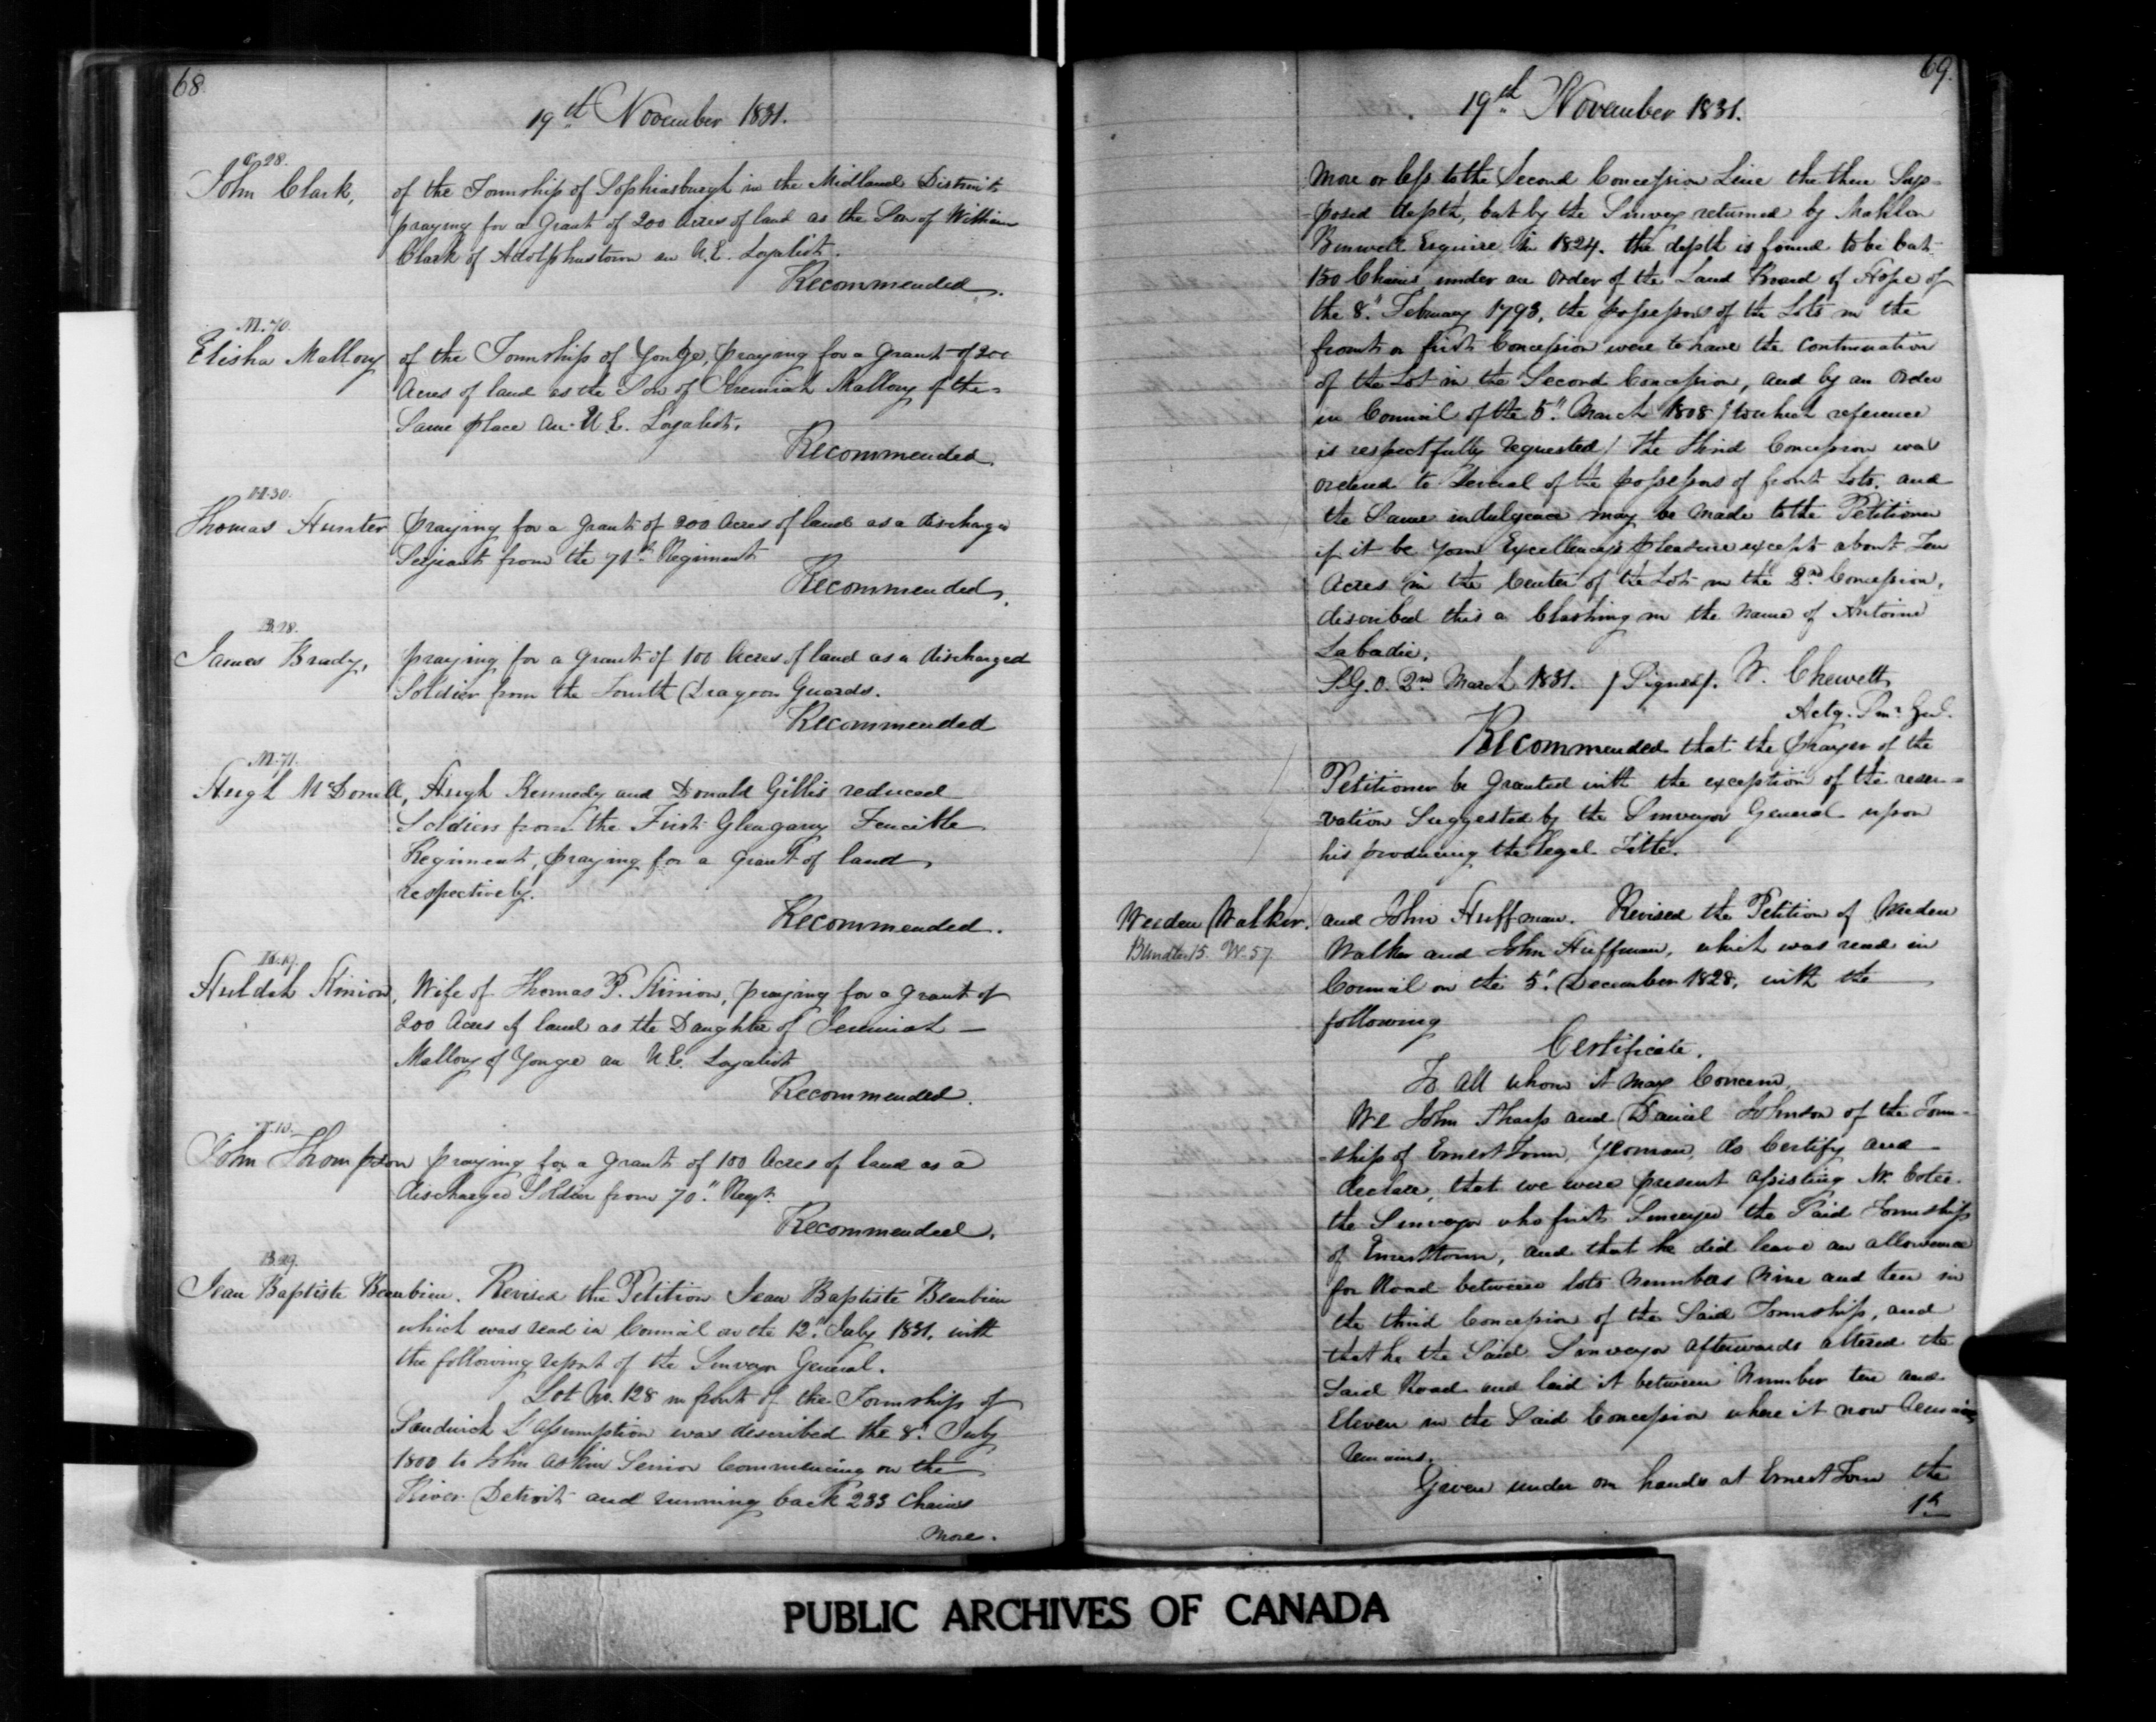 68
19th November 1831.
C. 28.
John Clark, of the Township of Sophiasburgh in the Midland District
praying for a Grant of 200 Acres of land as the Son of William
Clark of Adolphustown an U.E. Loyalist.
Recommended.
M. 70.
Elisha Mallory of the Township of Yonge, praying for a Grant of 200
Acres of land as the Son of Jeremiah Mallory of the
Same place an U.E. Loyalist.
Recommended.
H. 30.
Thomas Hunter praying for a grant of 200 Acres of land as a discharged
Serjeant from the 71st Regiment
Recommended.
B. 28.
James Brady, praying for a grant of 100 Acres of land as a discharged
Soldier from the Fourth Dragoon Guards.
Recommended
M. 71.
Hugh McDonell, Hugh Kennedy and Donald Gillis reduced
Soldiers from the First Glengarry Fencible
Regiment, praying for a Grant of land
respectively.
Recommended.
Huldah Kinion, Wife of Thomas P. Kinion, praying for a grant of
200 Acres of land as the Daughter of Jeremiah
Mallory of Yonge an U.E. Loyalist
Recommended.
John Thompson praying for a grant of 100 Acres of land as a
discharged Soldier from 70" Regt.
Recommended.
B. 29.
Jean Baptiste Beaubien. Revised the Petition Jean Baptiste Beaubien
which was read in Council on the 12" July 1831. with
the following report of the Surveyor General.
Lot No. 128 in front of the Township of
Sandwich L'Assumption was described the 8" July
1800 to John Askin Senior Commencing on the
River Detroit and running back 233 Chains
more.
69.
19th November 1831.
More or less to the Second Concession Line the then Sup-
-posed depth, but by the Survey returned by Mahlon
Burwell Esquire in 1824. the depth is found to be but
150 Chains under an Order of the Land Board of Hesse of
the 8" February 1793, the possessors of the Lots in the
front or first Concession were to have the Continuation
of the Lot in the Second Concession, and by an Order
in Council of the 5" March 1808 / to which reference
is respectfully requested / the third Concession was
ordered to Several of the possessors of front Lots. and
the Same indulgence may be made to the Petitioner
if it be Your Excellency's pleasure except about Ten
Acres in the Center of the Lot in the 2nd Concession,
discribed this a Clashing in the name of Antoine
Labadie.
S.G.O. 2nd March 1831. / Signed /. W. Chewett
Actg. Surr. Genl.
Recommended that the prayer of the
Petitioner be Granted with the exception of the reser-
vation Suggested by the Surveyor General upon
his producing the legal Title.
Weeden Walker. and John Huffman. Revised the Petition of Weeden
Bundle 15 W. 57. Walker and John Huffman, which was read in
Council on the 5" December 1828, with the
following
Certificate.
To All whom it May Concern,
We John Sharp and Daniel Johnson of the Town-
-ship of Ernest Town, Yeoman, do Certify and
declare, that we were present assisting Mr. Cotee
the Surveyor who first Surveyed the Said Township
of Ernesttown, and that he did leave an allowance
for Road between lots Numbers Nine and ten in
the third Concession of the Said Township, and
that he the Said Surveyor afterwards altered the
Said Road and laid it between Number ten and
Eleven in the Said Concession where it now Remains
Remains.
Given under our hands at Ernest Town the
PUBLIC ARCHIVES OF CANADA